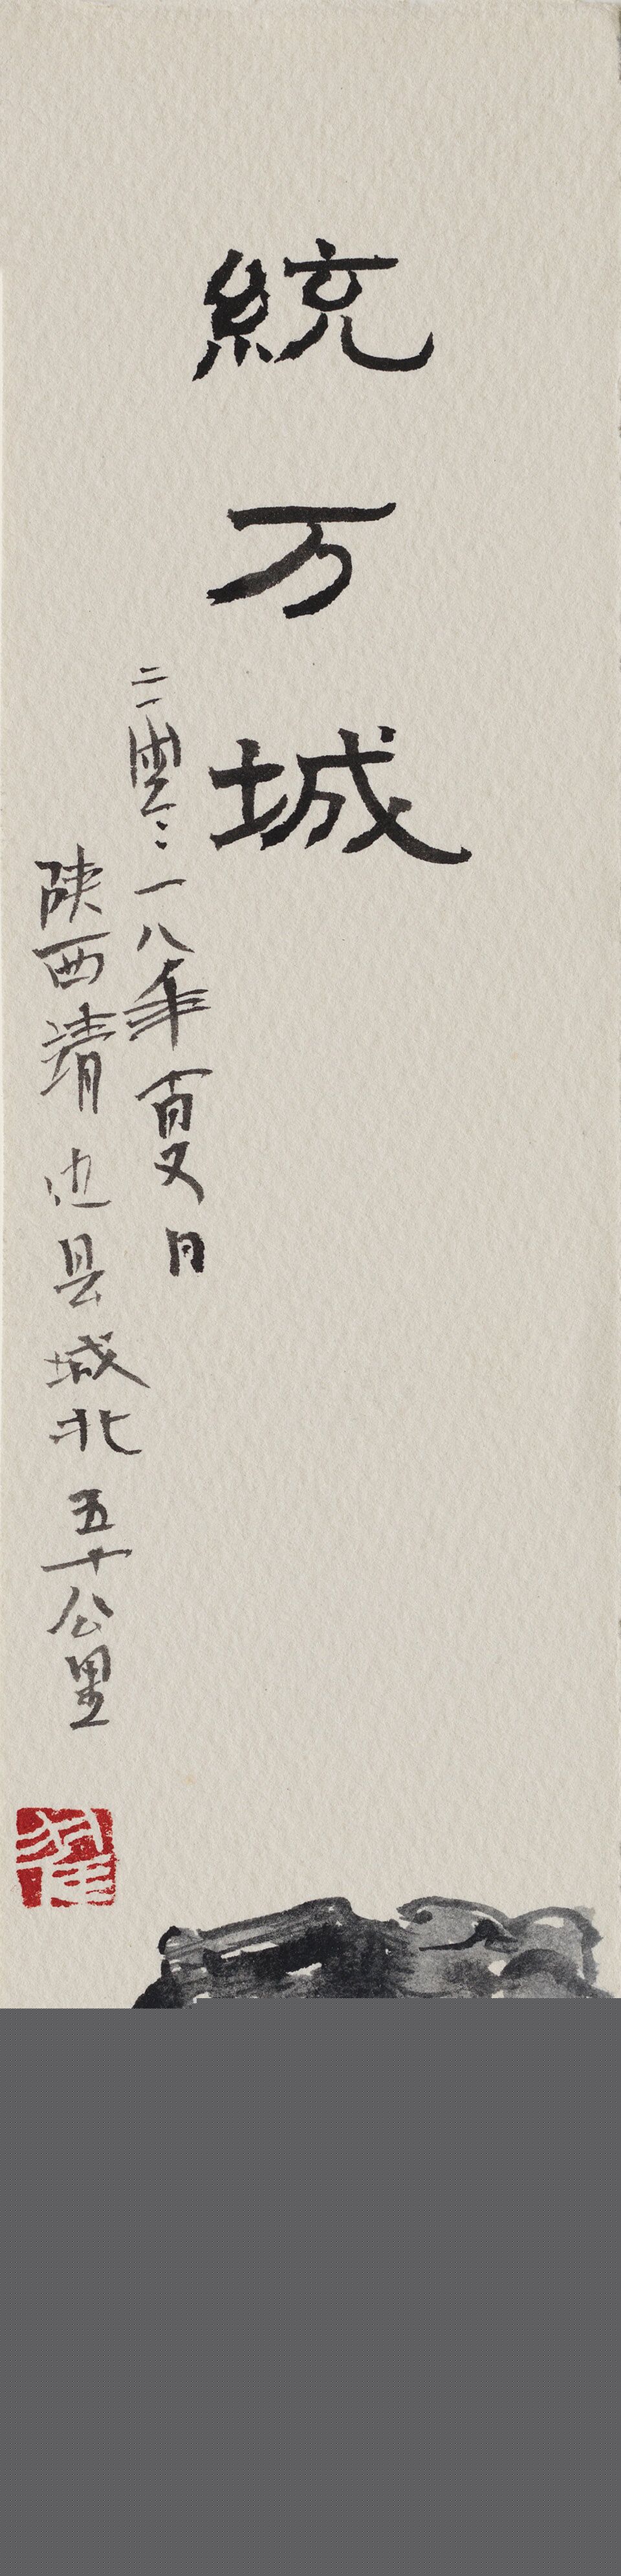 統万城
二零一八年夏月
陕西靖边县城北五十公里